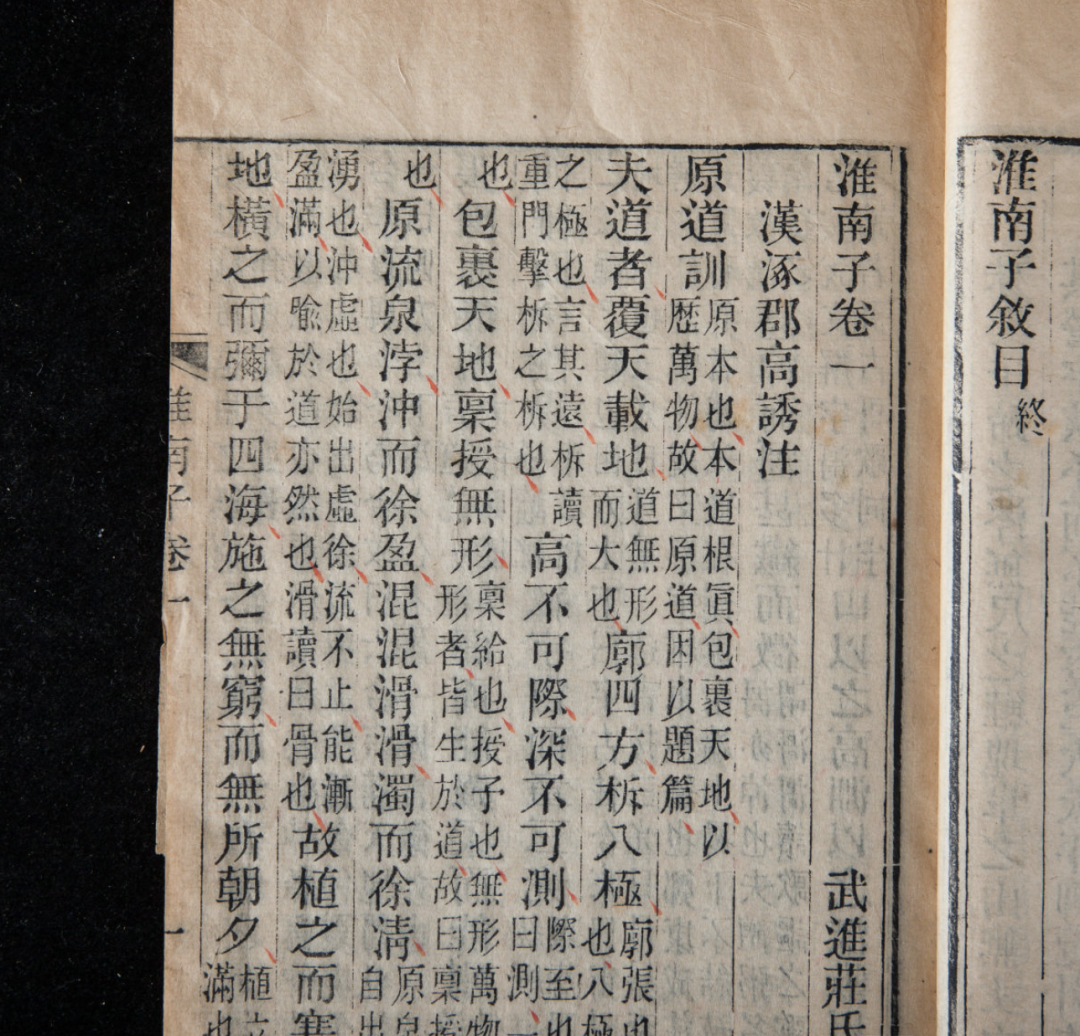 淮南子敘目終
淮南子卷一 武進莊氏
漢涿郡高誘注
原道訓 原本也本道根眞包裹天地以
歷萬物故曰原道因以題篇
夫道者覆天載地 道無形
而大也 廓四方柝八極 廓張也
也八極
之極也言其遠柝讀
重門擊柝之柝也 高不可際深不可測 際至也
曰測一
也包裹天地稟授無形 稟給也授子也無形萬物
形者皆生於道故曰稟授
也 原流泉浡沖而徐盈混混滑滑濁而徐清 原泉
自出
湧也沖虛也始出虛徐流不止能漸
盈滿以喻於道亦然也滑讀曰骨也 故植之而塞
地橫之而彌于四海施之無窮而無所朝夕 植立
滿也
淮南子卷一 一